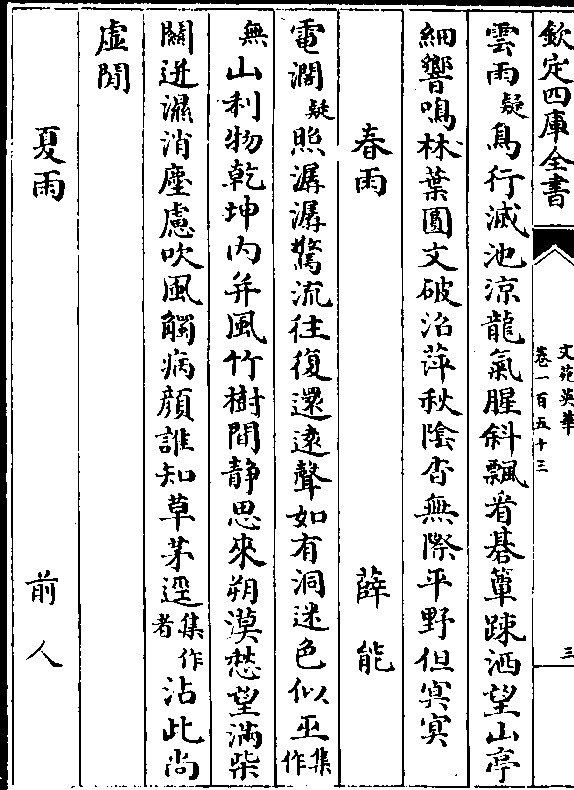 欽定四庫全書
文苑英華
卷一百五十三
三
雲雨疑鳥行滅池涼龍氣腥斜飄看碁簟踈洒望山亭
細響鳴林葉圓文破沼萍秋陰杳無際平野但冥冥
春雨 薛能
電濶疑照潺潺驚流往復還遠聲如有洞迷色似巫集作
無山利物乾坤内并風竹樹間靜思來朔漠愁望滿柴
關迸濕消塵慮吹風觸病顔誰知草茅逕集作者沾此尚
虛閒
夏雨 前人